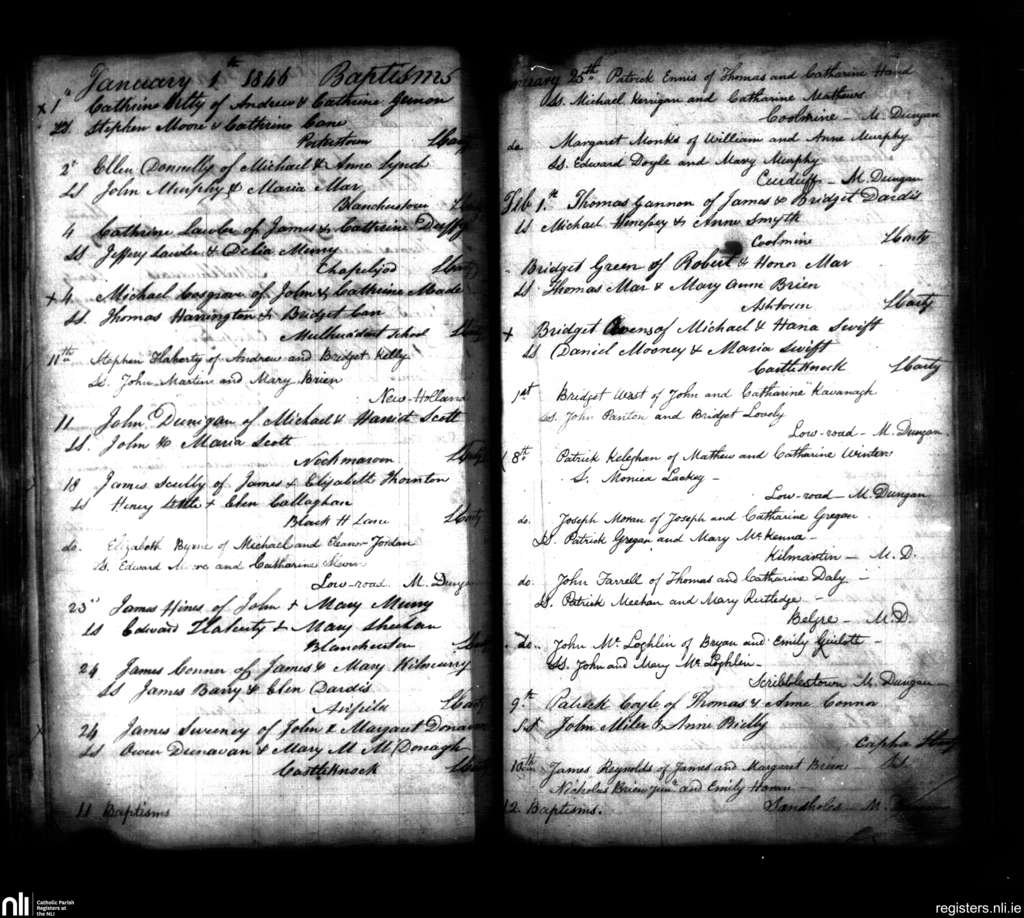 January 1th 1846 Baptisms
x 1st Cathrine of Andrew & Cathrine Gernon
Ss. Stephen Moore & Cathrine Cane
Porterstown
2d Ellen Donnelly of Michael & Anne Lynch
Ss John Murphy & Maria Mar
Blanchestown
4 Cathrine Lawler of James & Cathrine Duffy
Ss Jeffery Lawler & Delia Murry
Chapelizod
x 4. Michael Cosgrove of John & Cathrine Meade
Ss. Thomas Harrington & Bridget
School
11th Stephen Flaherty of Andrew and Bridget Kelly
Ss. John Martin and Mary Brien
New-Holland
11 John Dunigan of Michael & Harriet Scott
Ss. John & Maria Scott
Nockmaroon
18 James Scully of James & Elizabeth Thornton
Ss Henry & Elen Callaghan
Black H Lane
do. Elizabeth Byrne of Michael and Eleanor Jordan
Ss. Edward and Catharine
Low-road M. Dungan
23d James Hines of John & Mary Murry
Ss Edward Flaherty & Mary Sheehan
Blancherstown
24 James Connor of James & Mary
Ss James Barry & Elen Dardis
24 James Sweeney of John & Margaret Donavan
Ss. Owen Dunavan & Mary M McDonagh
CastleKnock
11 Baptisms
25th Patrick Ennis of Thomas and Catharine Hand
Ss. Michael Kerrigan and Catharine Mathews
Coolmine - M. Dungan
do Margaret Monks of William and Anne Murphy
Ss. Edward Doyle and Mary Murphy
M. Dungan
Feb 1th Thomas Gannon of James & Bridget Dardis
Ss Michael & Anne Smyth
Coolmine
Bridget Green of Robert & Honor Mar
Ss. Thomas Mar & Mary Anne Brien
Ashtown
x Bridget Owens of Michael & Hana Swift
Ss Daniel Mooney & Maria Swift
CastleKnock
1st Bridget West of John and Catharine Kavanagh
Ss. John Panton and Bridget Lovely
Low-road - M. Dungan
8th Patrick Keleghan of Mathew and Catharine Winters
S. Monica Lackey -
Low-road - M. Dungan
do. Joseph Moran of Joseph and Catharine Gregan
Ss. Patrick Gregan and Mary McKenna -
Kilmartin - M. D.
do. John Farrell of Thomas and Catharine Daly -
Ss. Patrick Meehan and Mary Rutledge -
M.D.
do. John McLoghlin of Bryan and Emily
Ss. John and Mary McLoghlin -
Scribblestown M. Dungan
9th Patrick Coyle of Thomas & Anne Connor
Ss John Miler & Anne Rielly
10th James Reynolds of James and Margaret Brien - Ss.
Nicholas Brien Junr and Emily
Sandholes - M.
12 Baptisms.
nli
Catholic Parish
Registers at
the NLI
registers.nli.ie